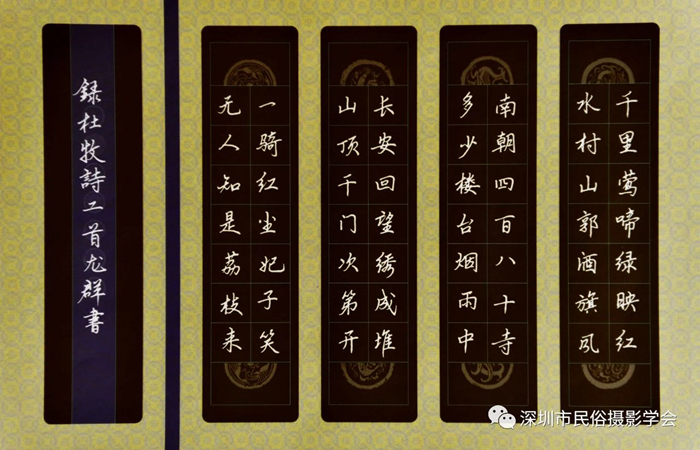 千里莺啼绿映红
水村山郭酒旗风
南朝四百八十寺
多少楼台烟雨中
长安回望绣成堆
山顶千门次第开
一骑红尘妃子笑
无人知是荔枝来
録杜牧詩二首龙群書
深圳市民俗摄影学会